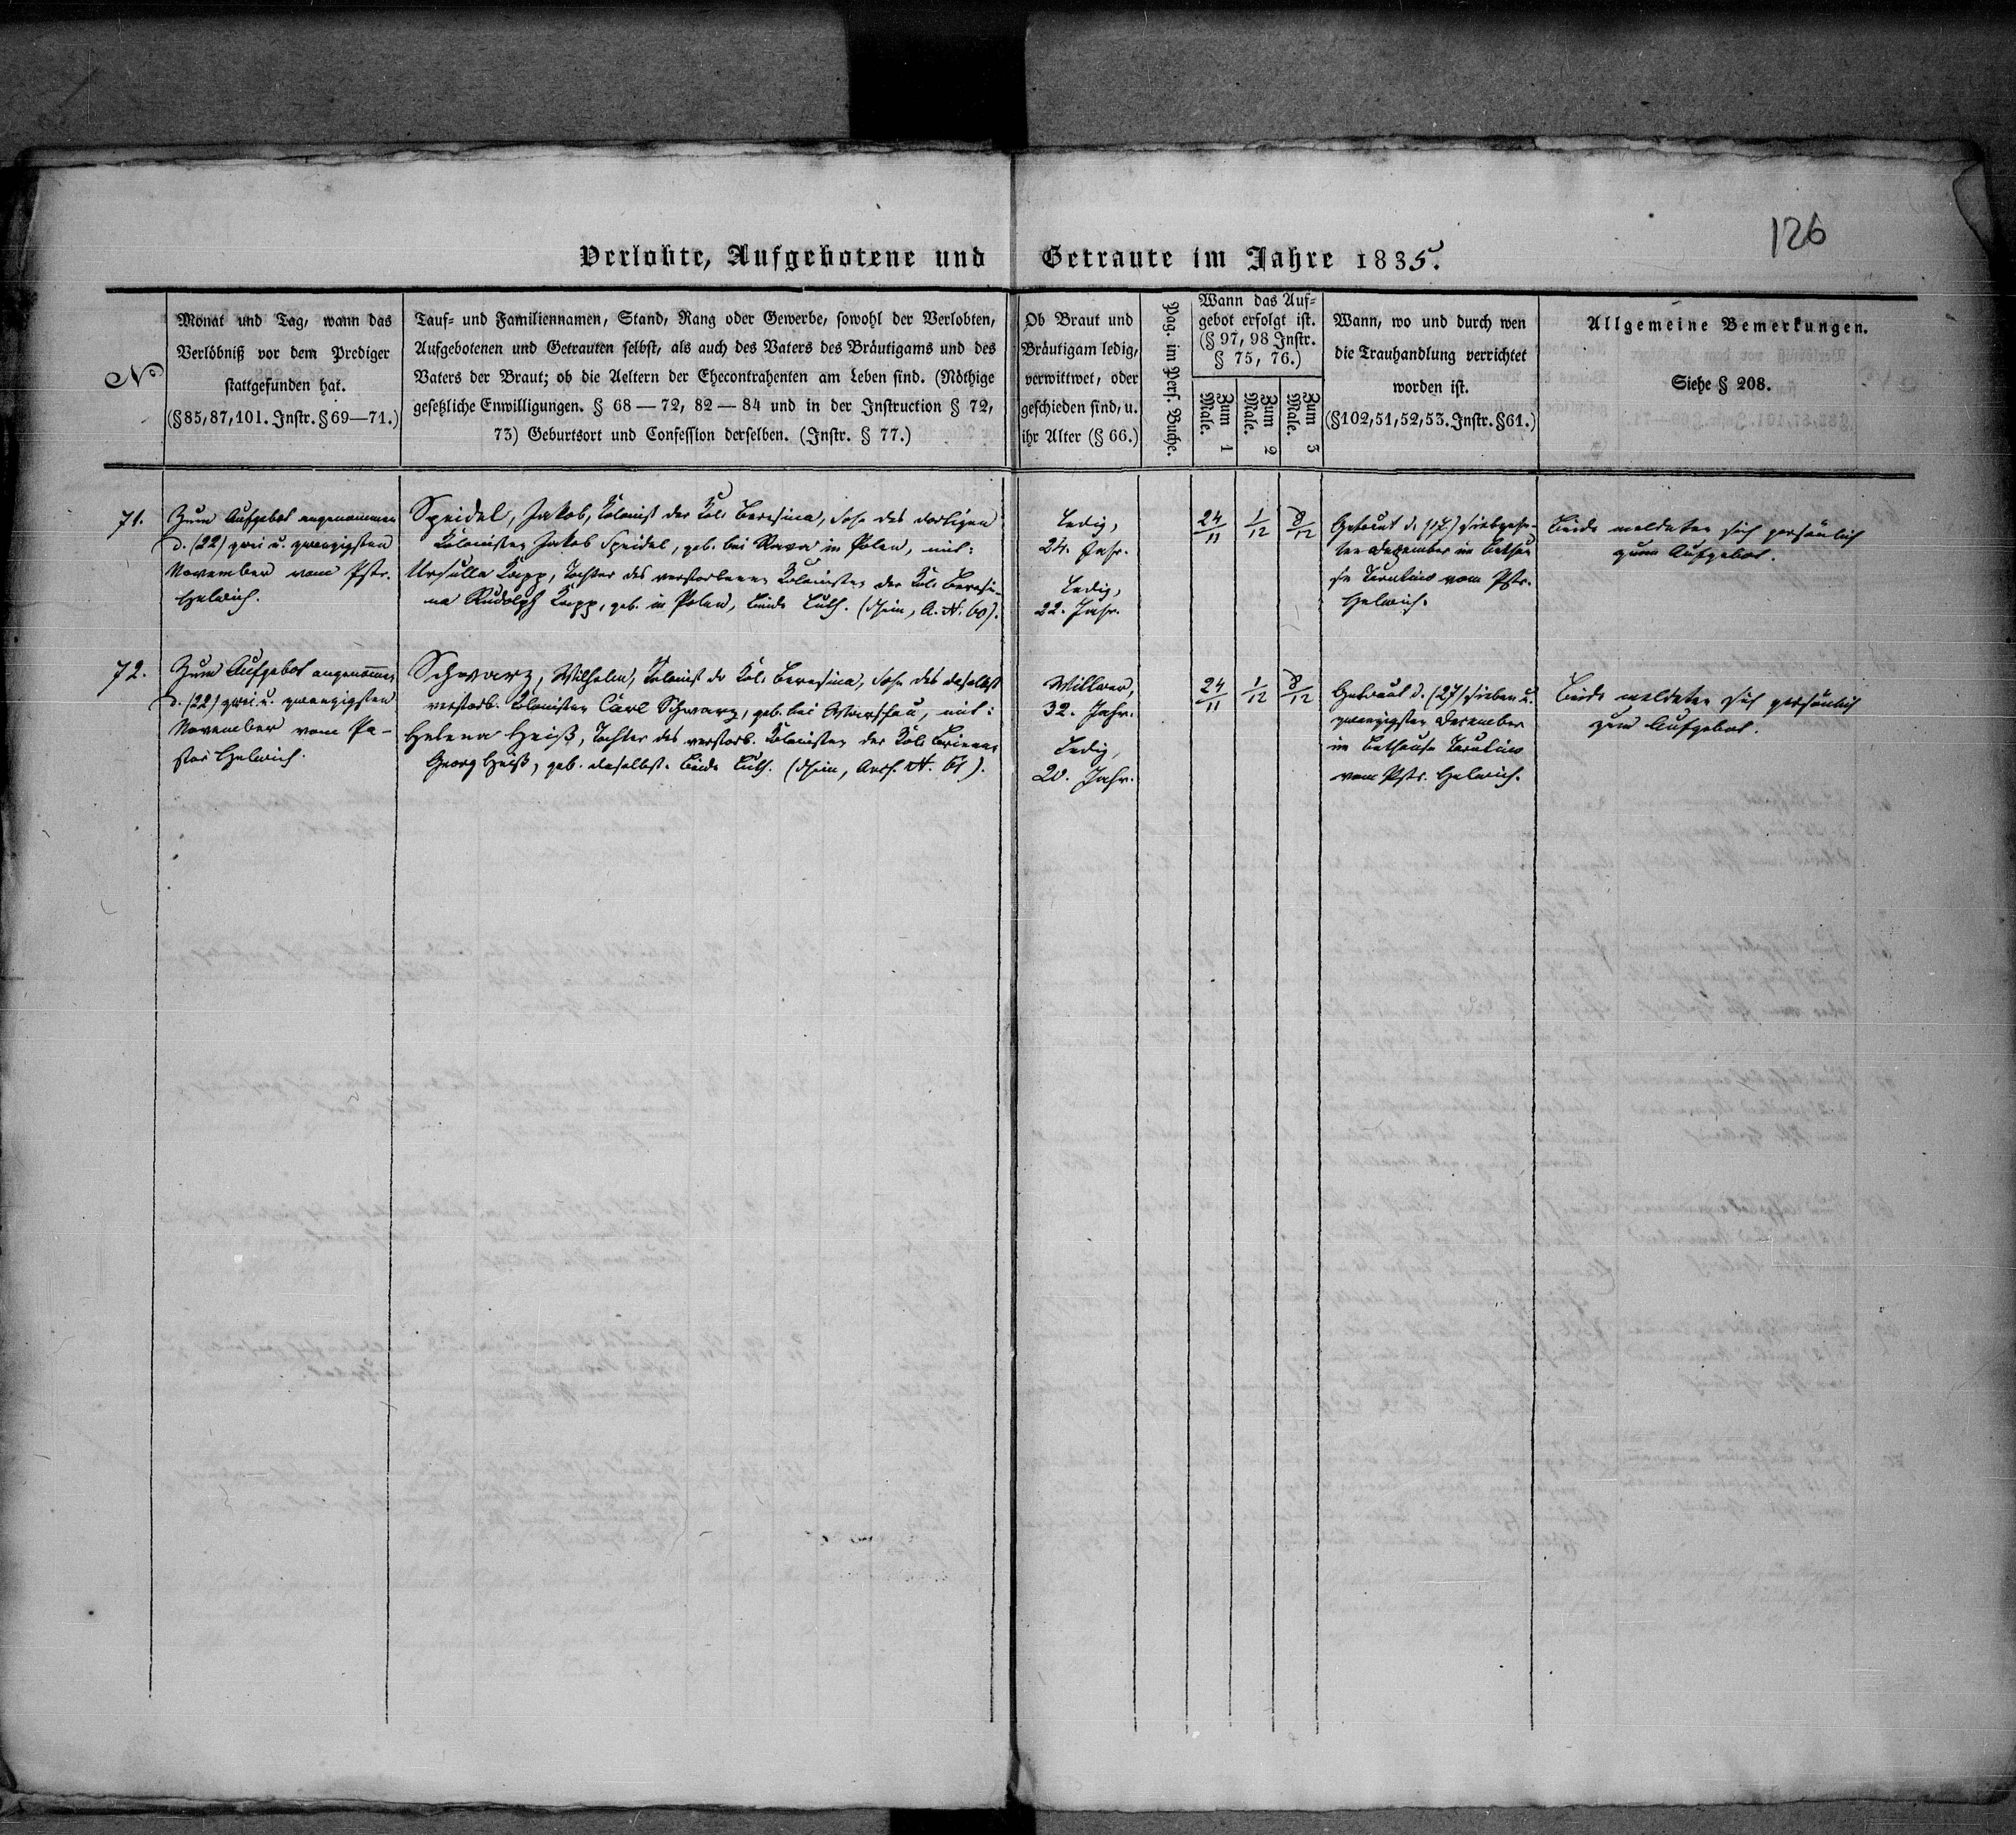 126
Verlobte, Aufgebotene und Getraute im Jahre 1835.
No
Monat und Tag, wann das
Verlöbniß vor dem Prediger
stattgefunden hat.
(§85,87,101. Instr. §69—71.)
Tauf- und Familiennamen, Stand, Rang oder Gewerbe, sowohl der Verlobten,
Aufgebotenen und Getrauten selbst, als auch des Vaters des Bräutigams und des
Vaters der Braut; ob die Aeltern der Ehecontrahenten am Leben sind. (Nöthige
gesetzliche Einwilligungen. § 68—72, 82—84 und in der Instruction § 72,
73) Geburtsort und Confession derselben. (Instr. § 77.)
Ob Braut und
Bräutigam ledig,
verwittwet, oder
geschieden sind, u.
ihr Alter (§ 66.)
Pag. im Pers. Buche.
Wann das Auf-
gebot erfolgt ist.
(§ 97, 98 Instr.
§ 75, 76.)
Zum 1
Male.
Zum 2
Male.
Zum 3
Male.
Wann, wo und durch wen
die Trauhandlung verrichtet
worden ist.
(§102,51,52,53. Instr. §61.)
Allgemeine Bemerkungen.
Siehe § 208.
71.
Zum Aufgebot angenommen
d. (22) zwei u. zwanzigsten
November vom Pstr.
Helwich.
Speidel, Jakob, Kolonist der Kol. Beresina, Sohn des dortigen
Kolonisten Jakob Speidel, geb. bei Rava in Polen, mit:
Ursulla Kapp, Tochter des verstorbenen Kolonisten der Kol. Beresi-
na Rudolph Kapp, geb. in Polen, beide Luth. (Schein, A. N. 60).
Ledig,
24. Jahr.
Ledig,
22. Jahr.
24/11
1/12
8/12
Getraut d. (17.) siebzehn-
ten Dezember im Bethau-
se Tarutino vom Pstr.
Helwich.
Beide meldeten sich persönlich
zum Aufgebot.
72.
Zum Aufgebot angenom̄en
d. (22) zwei u. zwanzigsten
November vom Pa-
stor Helwich.
Schwarz, Wilhelm, Kolonist der Kol. Beresina, Sohn des daselbst
verstorb. Kolonisten Carl Schwarz, geb. bei Warschau, mit:
Helena Heiß, Tochter des verstorb. Kolonisten der Kol. Brienne
Georg Heiß, geb. daselbst. beide Luth. (Schein, N. 61).
Wittwer,
32. Jahr.
Ledig,
20. Jahr.
24/11
1/12
8/12
Getraut d. (27) sieben u.
zwanzigsten Dezember
im Bethause Tarutino
vom Pstr. Helwich.
Beide meldeten sich persönlich
zum Aufgebot.